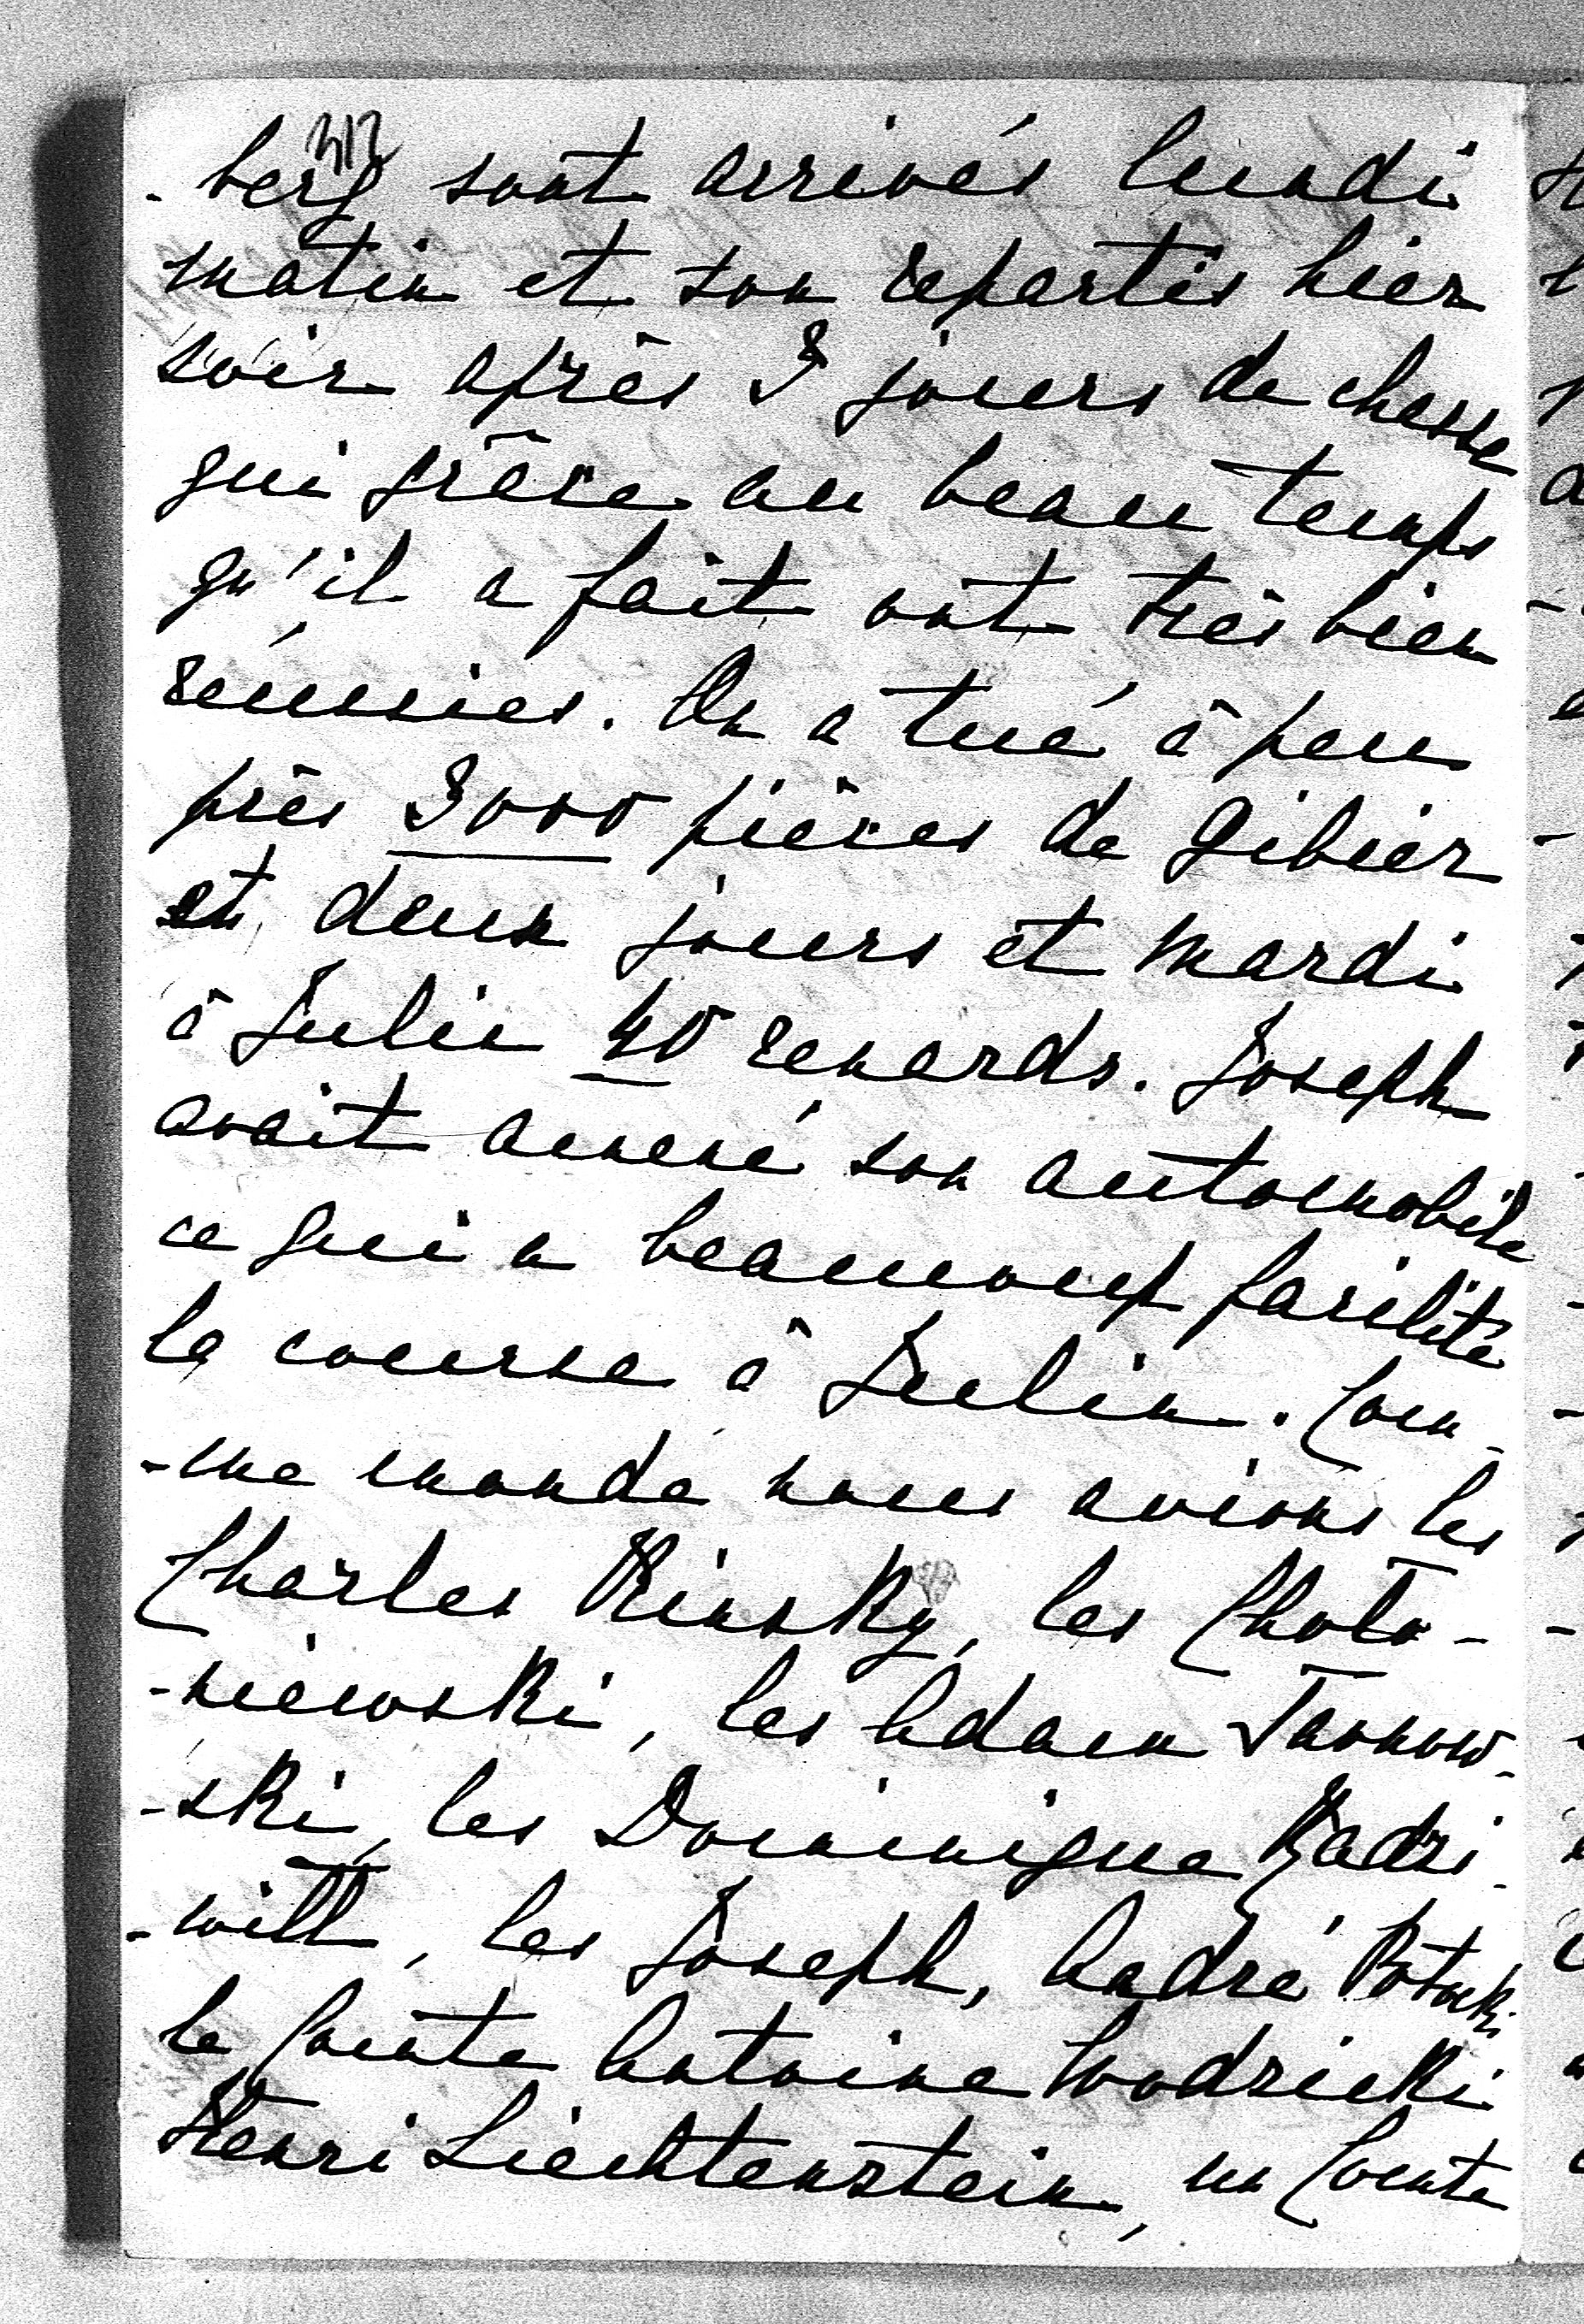 313
-berg sont arrivés lundi
matin et son repartis hier
soir après 3 jours de chasse
qui grâce au beau temps
qu'il a fait ont très bien
réussies. On a tué à peu
près 3000 pièces de gibier
en deux jours et mardi
à Julin 40 renards. Joseph
avait amené son automobile
ce qui a beaucoup facilité
la course à Julin. Com-
-me monde nous avions les
Charles Kinsky, les Cholo-
-niewski, les Adam Tarnow-
-ski, les Dominique Radzi-
-will, les Joseph, André Potocki
le Comte Antoine Wodzicki
Henri Liechtenstein, un Comte